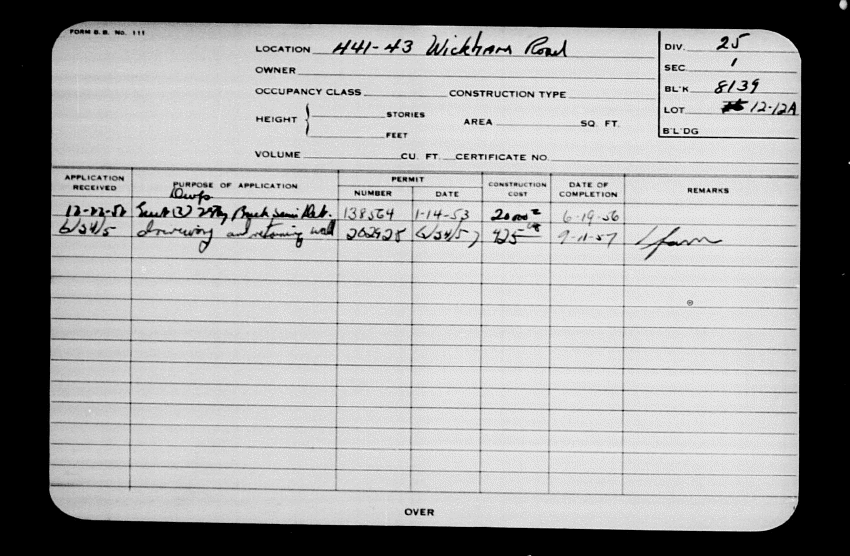 FORM B.B. No. 111
LOCATION 441-43 Wickham Road
OWNER
OCCUPANCY CLASS CONSTRUCTION TYPE
HEIGHT { STORIES
FEET
AREA SQ. FT.
VOLUME CU. FT. CERTIFICATE NO.
DIV. 25
SEC 1
BL'K 8139
LOT 12-12A
B'L'DG
APPLICATION RECEIVED PURPOSE OF APPLICATION PERMIT NUMBER DATE CONSTRUCTION COST DATE OF COMPLETION REMARKS
Dwgs
12-22-52 Brick Semi Det. 138564 1-14-53 20000 6-19-56
6/24/5 and wall 202925 6/24/57 425 9-11-57
OVER